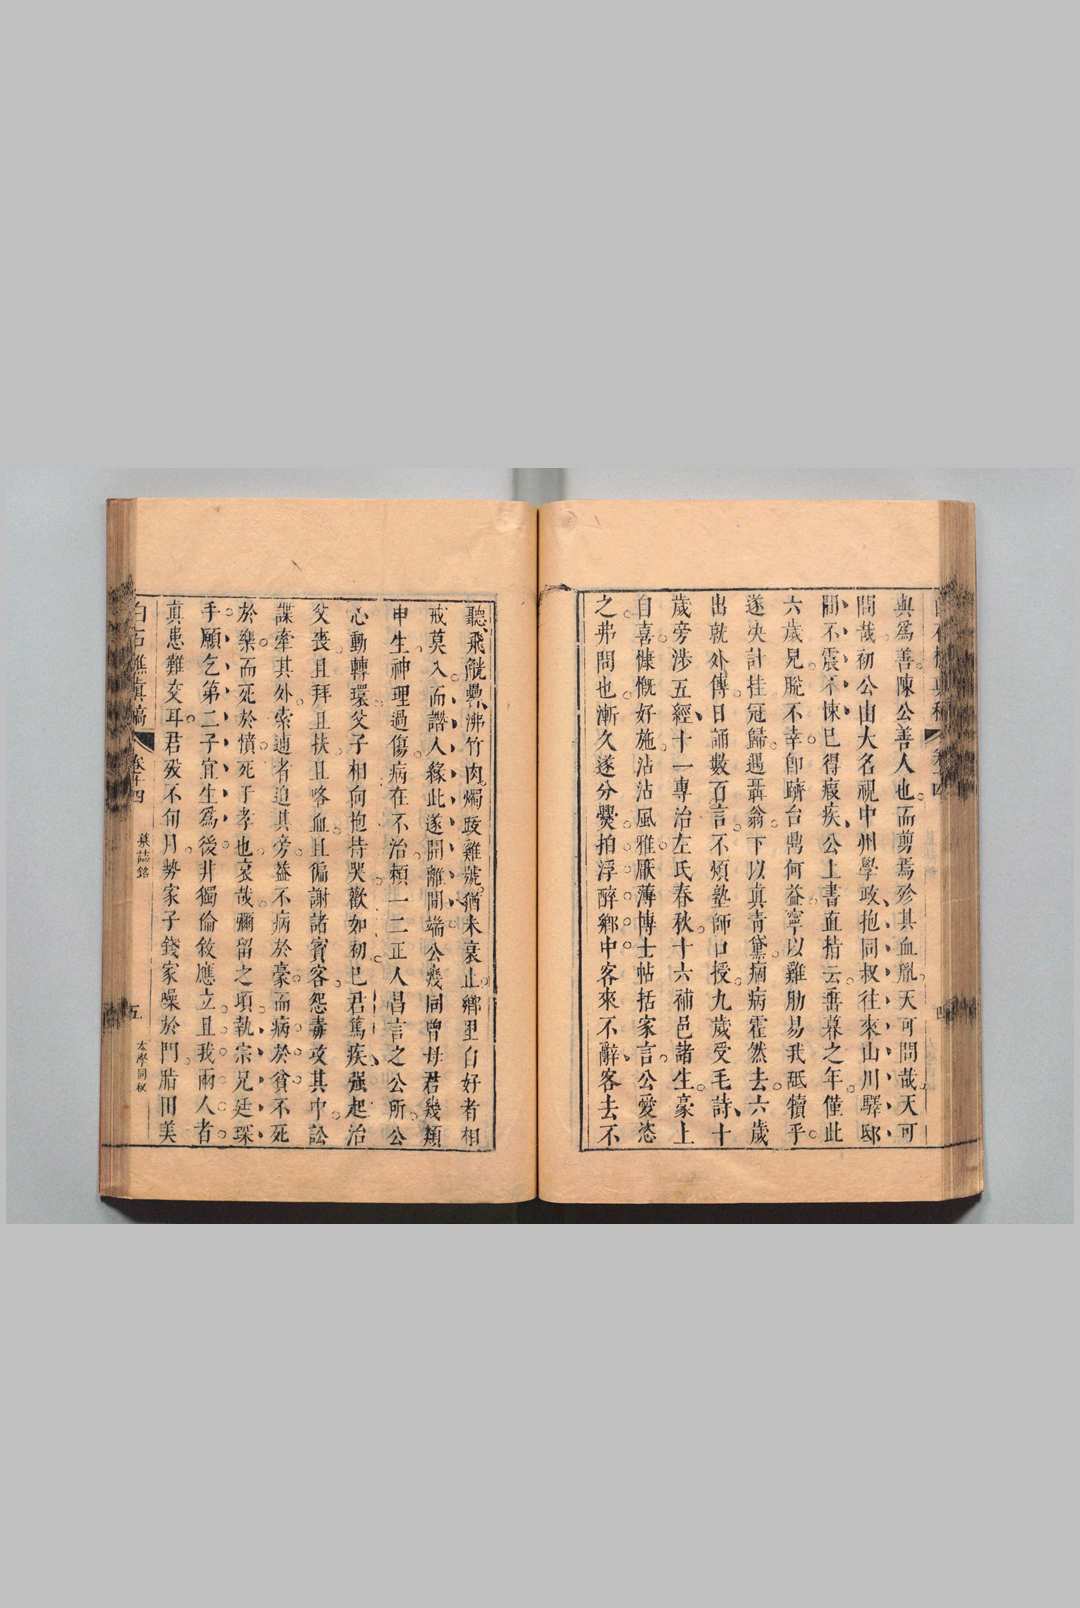 與爲善陳公善人也而剪焉殄其血胤天可問哉天可
問哉初公由大名視中州學政抱同叔往來山川驛邸
間不震不悚已得痰疾公上書直指云垂暮之年僅此
六歲兒脫不幸卽躋台鼎何益寧以雞肋易我舐犢乎
遂決計挂冠歸遇聶翁下以真青黛痼病霍然去六歲
出就外傅日誦數百言不煩塾師口授九歲受毛詩十
歲旁涉五經十一專治左氏春秋十六補邑諸生豪上
自喜慷慨好施沾沾風雅厭薄博士帖括家言公愛恣
之弗問也漸久遂分爨拍浮醉鄉中客來不辭客去不
聽飛觥爨沸竹肉燭跋雞號猶未衰止鄉里自好者相
戒莫入而譖人緣此遂開離間端公幾同曾母君幾類
申生神理過傷病在不治賴一二正人昌言之公所公
心動轉環父子相向抱持哭歡如初已君篤疾強起治
父喪且拜且扶且咯血且徧謝諸賓客怨毒攻其中訟
諜牽其外索逋者迫其旁蓋不病於豪而病於貧不死
於樂而死於憤死于孝也哀哉彌留之頃執宗兄廷琛
手願乞第二子宜生爲後非獨倫敘應立且我兩人者
真患難交耳君歿不旬月勢家子錢家噪於門脂田美
白石樵真稿
卷十四
墓誌銘
五